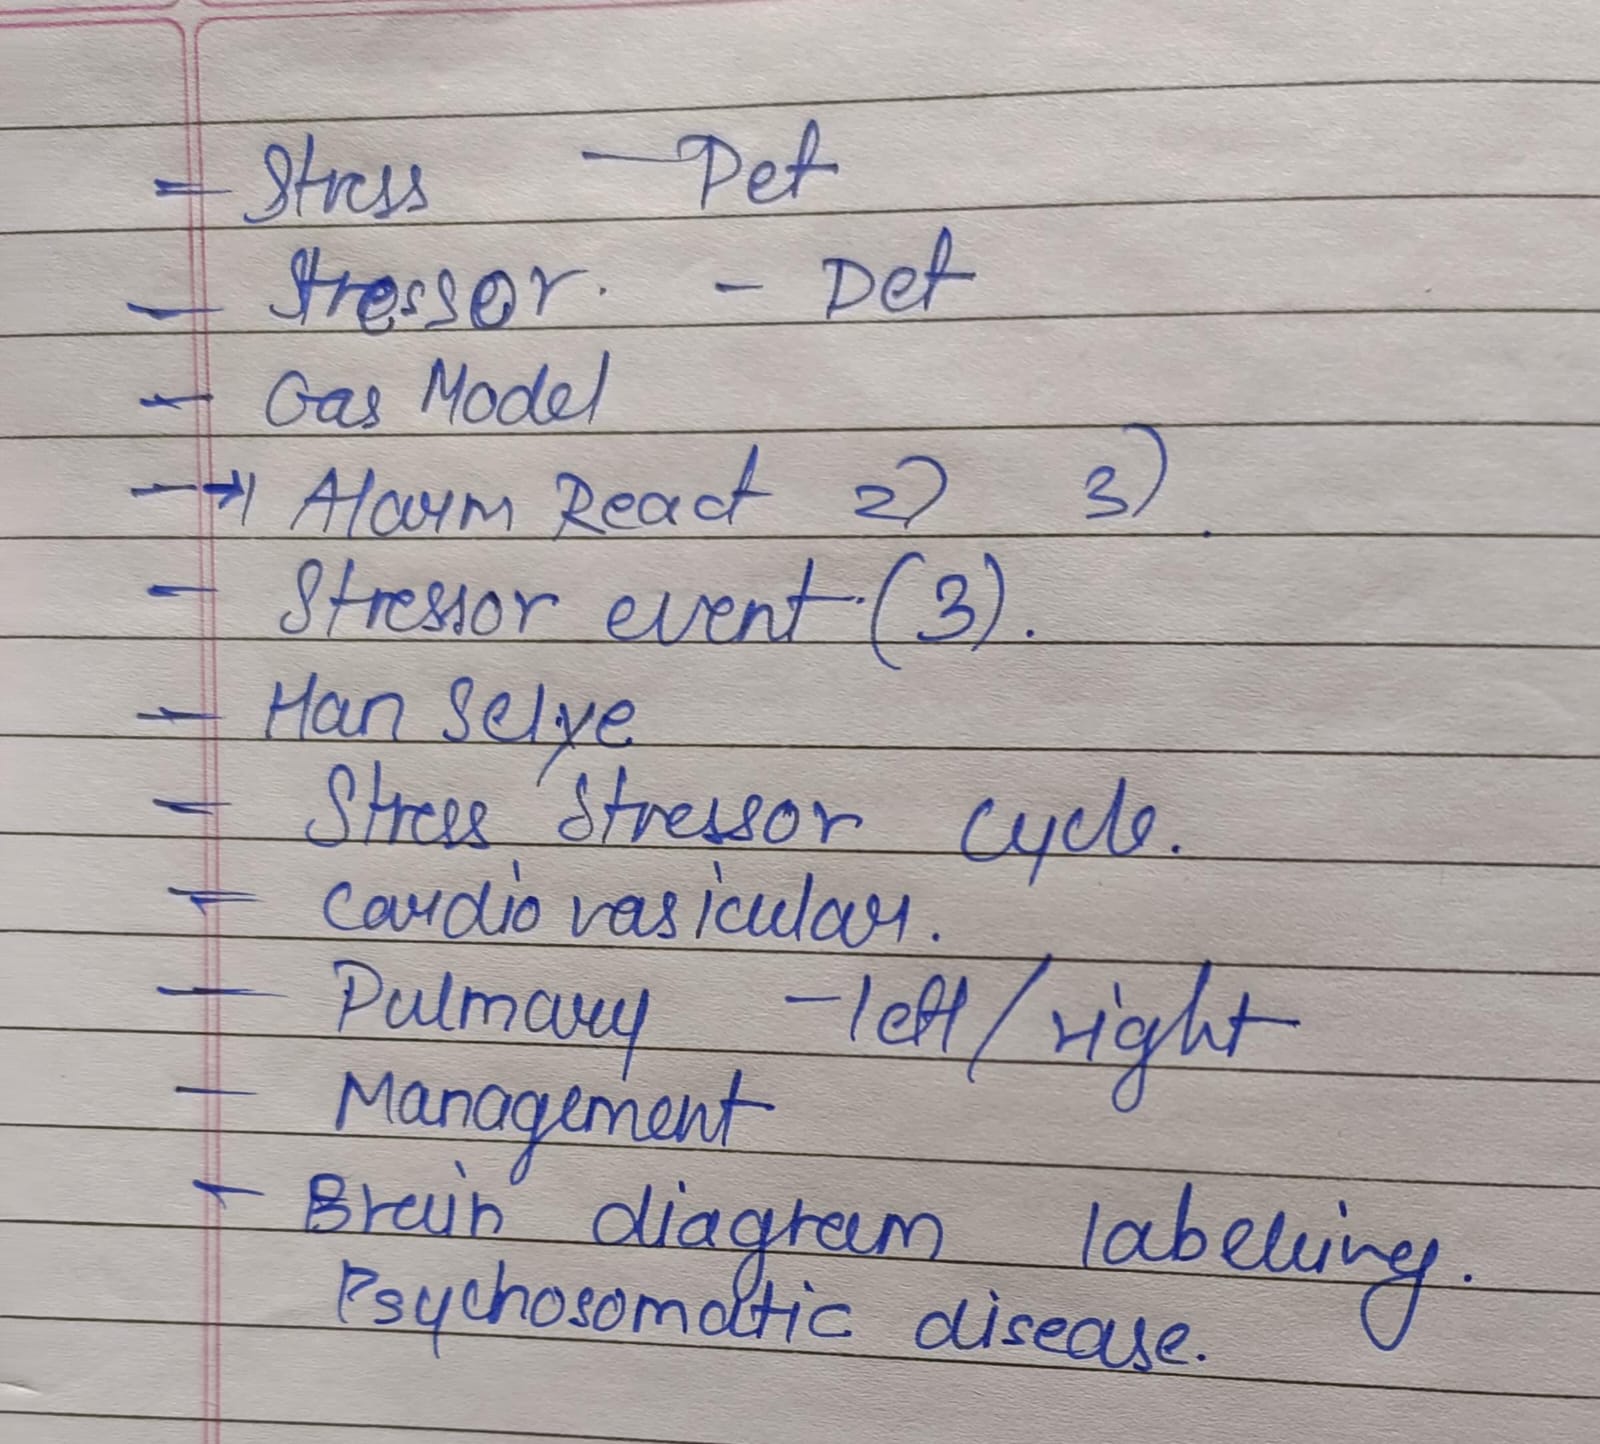 - Stress - Det
- Stressor. - Det
- Gas Model
- → 1 Alarm React 2) 3).
- Stressor event. (3).
- Han Selye
- Stress Stressor cycle.
- Cardio vasicular.
- Pulmary - left / right
- Management
- Brain diagram labelling.
Psychosomatic disease.